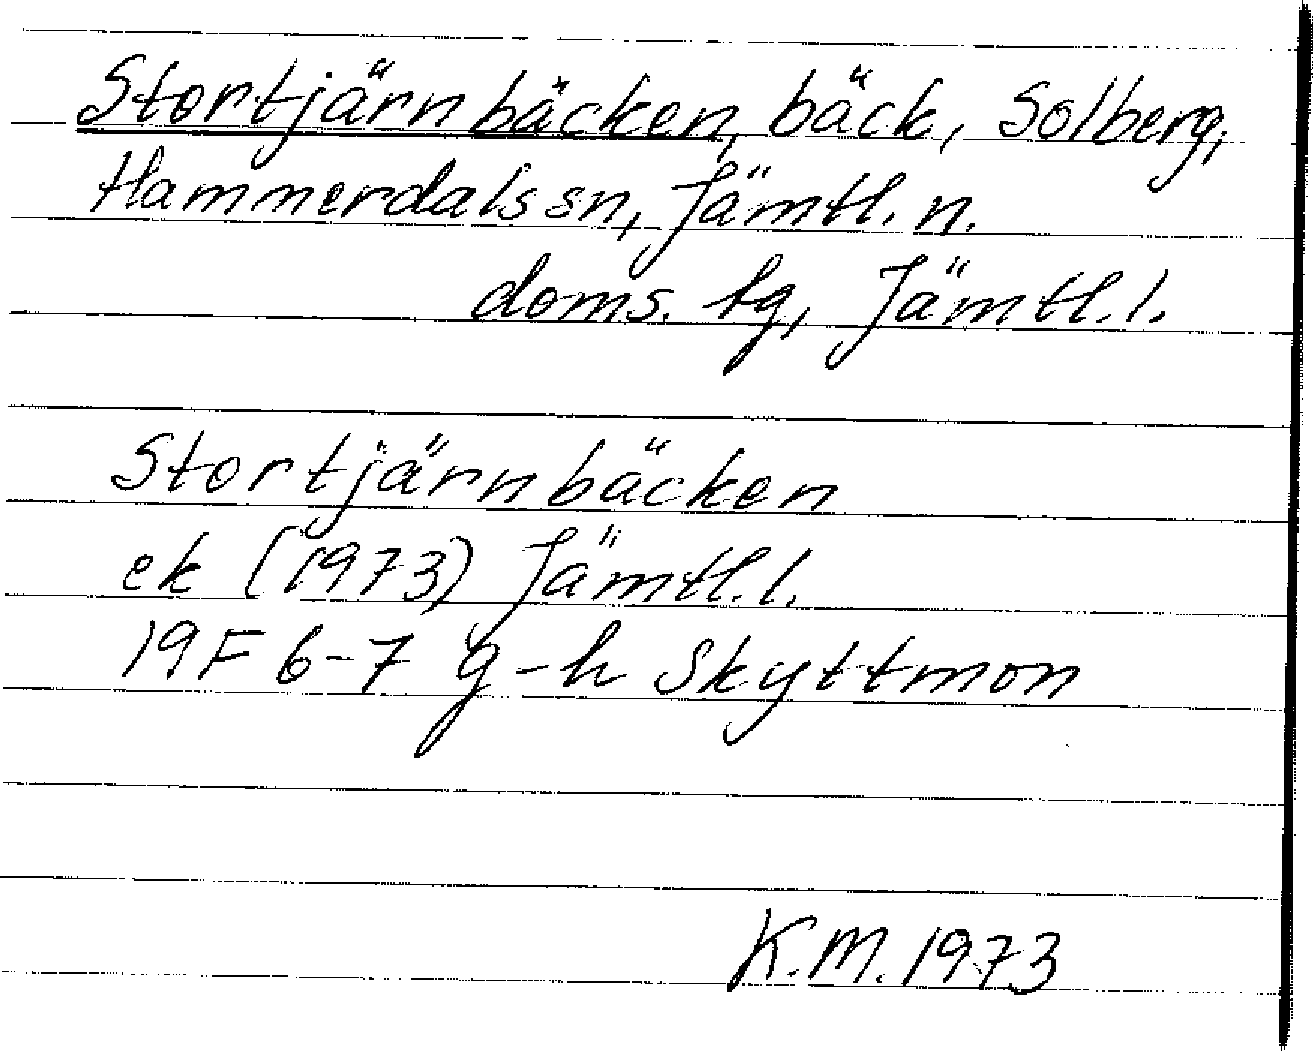 Stortjärnbäcken, bäck, Solberg,
Hammerdals sn, Jämtl. n.
doms. tg, Jämtl. l.
Stortjärnbäcken
ek (1973) Jämtl. l.
19F 6-7 g-h Skyttmon
K.M. 1973